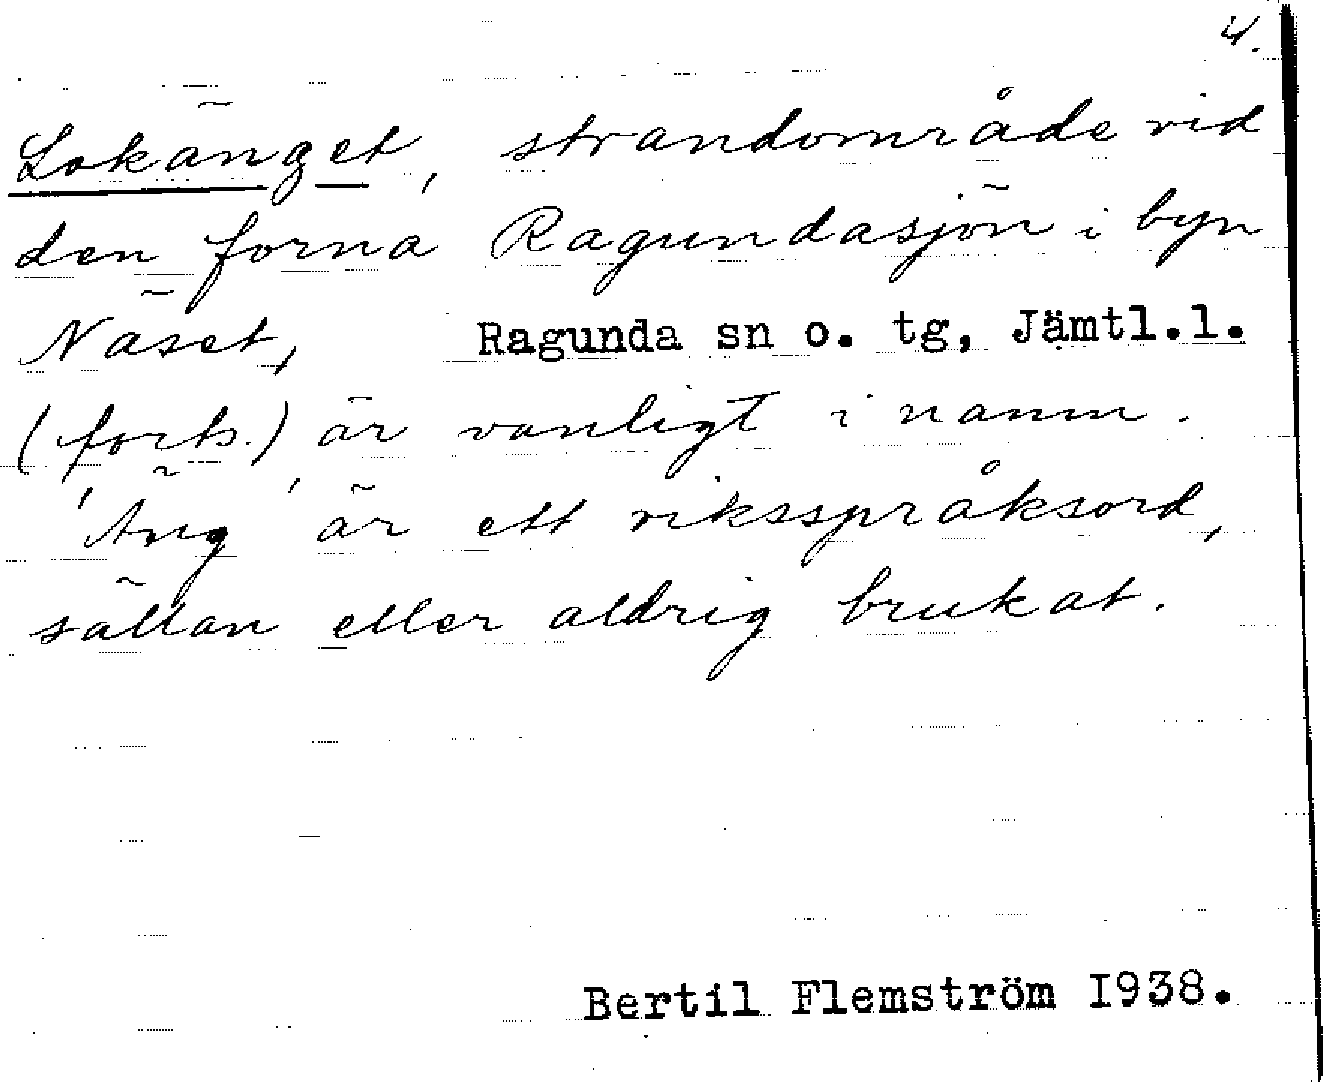 4.
Lokänget, strandområde vid
den forna Ragundasjön i byn
Näset, Ragunda sn o. tg, Jämtl.l.
(forts.) är vanligt i namn.
'Äng' är ett riksspråksord,
sällan eller aldrig brukat.
Bertil Flemström I938.